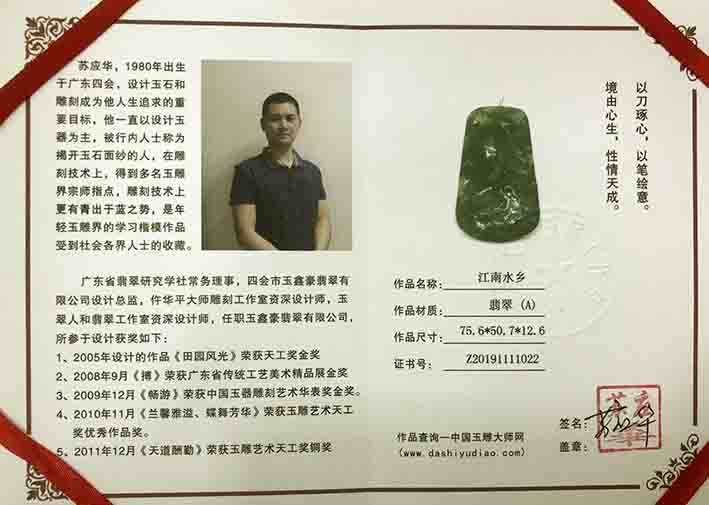 苏应华，1980年出生
于广东四会，设计玉石和
雕刻成为他人生追求的重
要目标，他一直以设计玉
器为主，被行内人士称为
揭开玉石面纱的人，在雕
刻技术上，得到多名玉雕
界宗师指点，雕刻技术上
更有青出于蓝之势，是年
轻玉雕界的学习楷模作品
受到社会各界人士的收藏。
广东省翡翠研究学社常务理事，四会市玉鑫豪翡翠有
限公司设计总监，仵华平大师雕刻工作室资深设计师，玉
翠人和翡翠工作室资深设计师，任职玉鑫豪翡翠有限公司，
所参于设计获奖如下：
1、2005年设计的作品《田园风光》荣获天工奖金奖
2、2008年9月《搏》荣获广东省传统工艺美术精品展金奖。
3、2009年12月《畅游》荣获中国玉器雕刻艺术华表奖金奖。
4、2010年11月《兰馨雅溢、蝶舞芳华》荣获玉雕艺术天工
奖优秀作品奖。
5、2011年12月《天道酬勤》荣获玉雕艺术天工奖铜奖
以刀琢心，以笔绘意。
境由心生，性情天成。
作品名称：江南水乡
作品材质：翡翠（A）
作品尺寸：75.6*50.7*12.6
证书号：Z20191111022
签名：
盖章：
作品查询—中国玉雕大师网
(www.dashiyudiao.com)